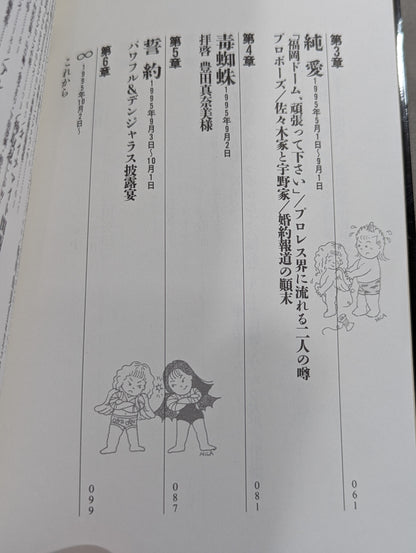 第3章
純愛 1995年5月1日〜9月1日
「福岡ドーム、頑張って下さい」／プロレス界に流れる二人の噂
プロポーズ／佐々木家と宇野家／婚約報道の顚末
061
第4章
毒蜘蛛 1995年9月2日
拝啓 豊田真奈美様
081
第5章
誓約 1995年9月3日〜10月1日
パワフル&デンジャラス披露宴
087
第6章
∞ 1995年10月2日〜
これから
099